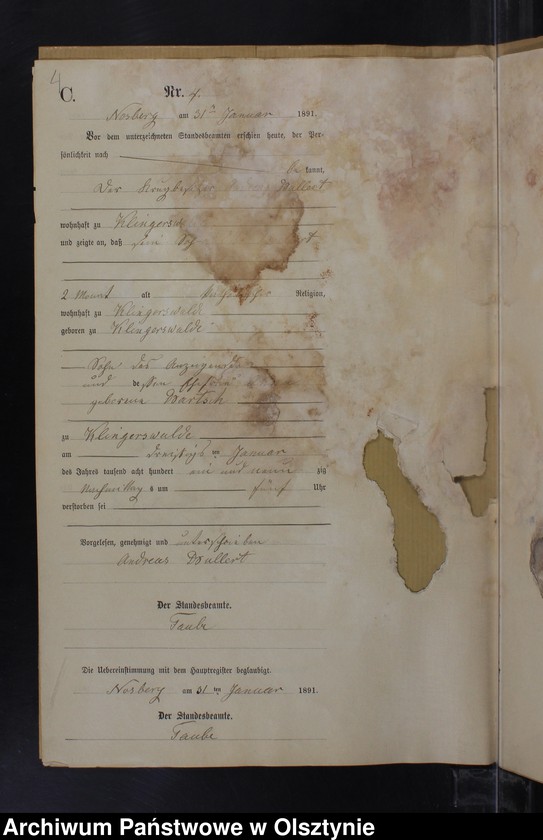 4
C.
Nr. 4.
Nosberg am 31ten Januar 1891.
Vor dem unterzeichneten Standesbeamten erschien heute, der Per-
sönlichkeit nach
be kannt,
Der Krugbesitzer
wohnhaft zu Klingersw
und zeigte an, daß sein
2 Monat alt katholischer Religion,
wohnhaft zu Klingerswalde
geboren zu Klingerswalde
Sohn des Anzeigenden
und dessen Ehefrau
geborene Bartsch
zu Klingerswalde
am dreißigsten Januar
des Jahres tausend acht hundert ein und neun zig
Nachmittag s um fünf Uhr
verstorben sei
Vorgelesen, genehmigt und unterschrieben
Andreas
Der Standesbeamte.
Taube
Die Uebereinstimmung mit dem Hauptregister beglaubigt.
Nosberg am 31 ten Januar 1891.
Der Standesbeamte.
Taube
Archiwum Państwowe w Olsztynie